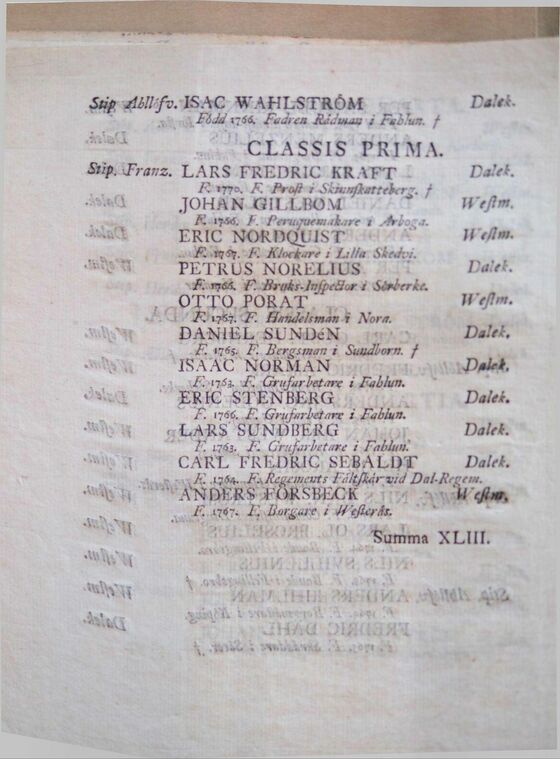 Stip Ahllöfv. ISAC WAHLSTRÖM Dalek.
Född 1766. Fadren Rådman i Fahlun. †
CLASSIS PRIMA.
Stip. Franz. LARS FREDRIC KRAFT Dalek.
F. 1770. F. Prost i Skinnskatteberg. †
JOHAN GILLBOM Westm.
F. 1766. F. Peruquemakare i Arboga.
ERIC NORDQUIST Westm.
F. 1767. F. Klockare i Lilla Skedvi.
PETRUS NORELIUS Dalek.
F. 1766. F. Bruks-Inspector i Sörberke.
OTTO PORAT Westm.
F. 1767. F. Handelsman i Nora.
DANIEL SUNDéN Dalek.
F. 1765. F. Bergsman i Sundborn. †
ISAAC NORMAN Dalek.
F. 1763. F. Grufarbetare i Fahlun.
ERIC STENBERG Dalek.
F. 1766. F. Grufarbetare i Fahlun.
LARS SUNDBERG Dalek.
F. 1763. F. Grufarbetare i Fahlun.
CARL FREDRIC SEBALDT Dalek.
F. 1764. F. Regements Fältskär vid Dal-Regem.
ANDERS FÖRSBECK Westm.
F. 1767. F. Borgare i Westerås.
Summa XLIII.